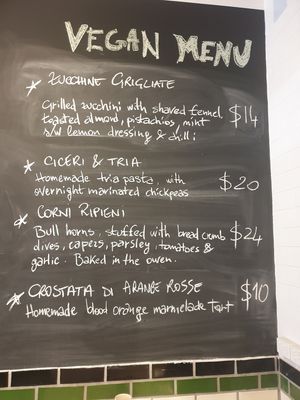 VEGAN MENU
ZUCCHINE GRIGLIATE
Grilled zucchini with shaved fennel,
toasted almond, pistachios, mint
s/w lemon dressing & chilli
$14
CICERI & TRIA
Homemade tria pasta, with
overnight marinated chickpeas
$20
CORNI RIPIENI
Bull horns, stuffed with bread crumb
olives, capers, parsley, tomatoes &
garlic. Baked in the owen.
$24
CROSTATA DI ARANGE ROSSE
Homemade blood orange marmelade tart
$10